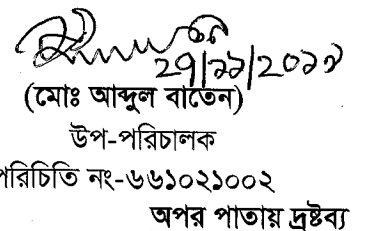 ২৭/১১/২০১৭
(মোঃ আব্দুল বাতেন)
উপ-পরিচালক
পরিচিতি নং-৬৬১০২১০০২
অপর পাতায় দ্রষ্টব্য